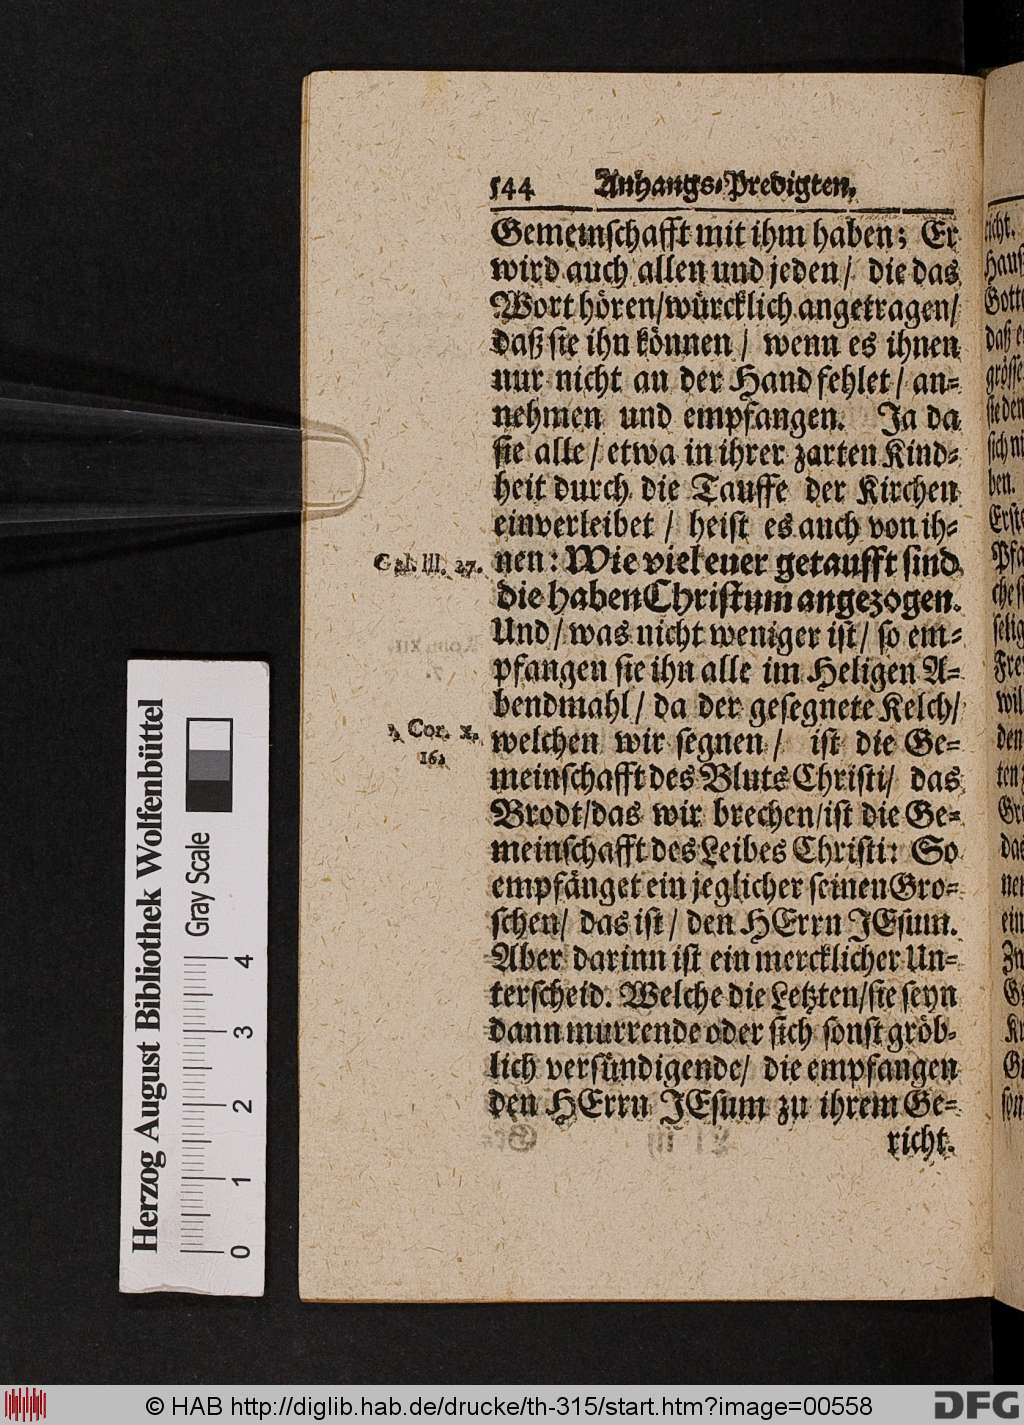 544 Anhangs-Predigten.
Gemeinschafft mit ihm haben; Er
wird auch allen und jeden / die das
Wort hören/würcklich angetragen/
daß sie ihn können / wenn es ihnen
nur nicht an der Hand fehlet / an-
nehmen und empfangen. Ja da
sie alle / etwa in ihrer zarten Kind-
heit durch die Tauffe der Kirchen
einverleibet / heist es auch von ih-
Gal. III. 27. nen: Wie viel euer getaufft sind
die haben Christum angezogen.
Und / was nicht weniger ist / so em-
pfangen sie ihn alle im Heligen A-
bendmahl / da der gesegnete Kelch/
1. Cor. X. welchen wir segnen / ist die Ge-
16.
meinschafft des Bluts Christi/ das
Brodt/das wir brechen/ist die Ge-
meinschafft des Leibes Christi: So
empfänget ein jeglicher seinen Gro-
schen/ das ist / den HErrn JEsum.
Aber darinn ist ein mercklicher Un-
terscheid. Welche die Letzten/sie seyn
dann murrende oder sich sonst gröb-
lich versündigende/ die empfangen
den HErrn JEsum zu ihrem Ge-
richt.
Herzog August Bibliothek Wolfenbüttel
Gray Scale
0 1 2 3 4
© HAB http://diglib.hab.de/drucke/th-315/start.htm?image=00558
DFG